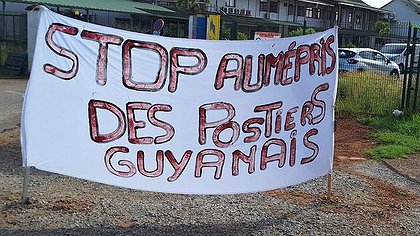 STOP AU MÉPRIS
DES POSTIERS
GUYANAIS